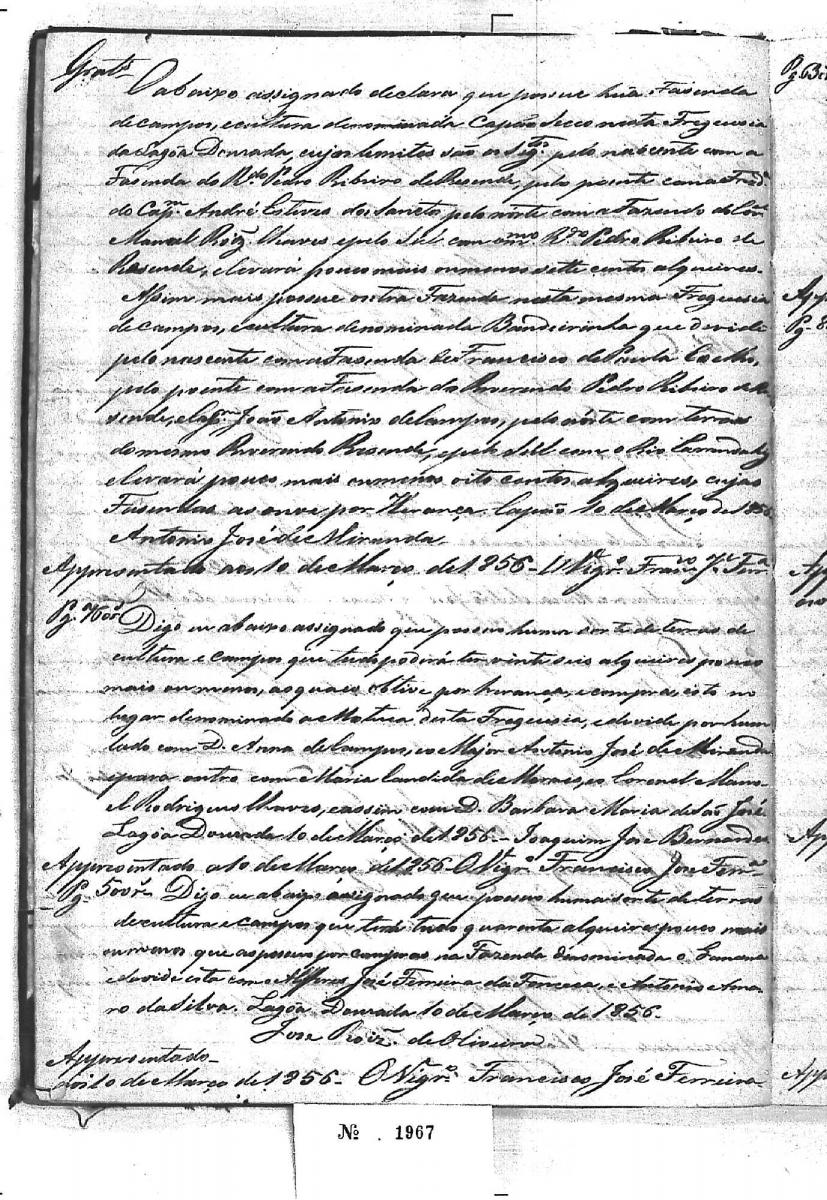 Gratis
O abaixo assignado declara que possue huã Fasenda
de campos, e cultura denominada Capão Secco nesta Freguesia
da Lagôa Dourada, cujos lemites são os Seg.tes pelo nascente com a
Fasenda do R.do Pedro Ribeiro de Resende, pelo poente com a Fasd.ª
do Cap.m André Esteves dos Sanctos, pelo norte com a Fazenda do Cor.el
Manoel Roiz Chaves e pelo Sul com o m.mo R.do Pedro Ribeiro de
Resende, e levará pouco mais ou menos sette centos alqueires.
Assim mais possue outra Fazenda nesta mesma Freguesia
de campos, e cultura denominada Bandeirinha que devide
pelo nascente com a Fasenda de Francisco de Paula Coelho,
pelo poente com a Fasenda do Reverendo Pedro Ribeiro de Re
sende, e Cap.m João Antonio de Campos, pelo nórte com terras
do mesmo Reverendo Resende, e pelo Sul com o Rio Carandahy
e levará pouco mais ou menos oito centos alqueires, cujas
Fasendas as ouve por Herança. Capão 10 de Março de 1856
Antonio José de Miranda
Appresentado aos 10 de Março de 1856 - O Vigr.º Fran.co J.e Ferr.ª
Pg.
Digo eu abaixo assignado que possuo huma sorte de terras de
cultura e campos que tudo poderá ter vinte seis alqueires pouco
mais ou menos, as quais obtive por herança, e compra, isto no
lugar denominado a Motuca desta Freguesia, e devide por hum
lado com D. Anna de Campos, e o Major Antonio José de Miranda
e para outro com Maria Candida de Moraes, e o Coronel Mano-
el Rodrigues Chaves, e assim com D. Barbara Maria de São José
Lagôa Dourada 10 de Março de 1856 - Joaquim Jose Bernardes
Appresentado a 10 de Março de 1856 O Vigr.º Francisco Jose Ferr.ª
Pg. 500 r.s Digo eu abaixo assignado que possuo huma sorte de terras
de cultura e campos que terá tudo quarenta alqueires pouco mais
ou menos que as possuo por compras na Fazenda denominada o
e devide esta com o Alferes José Ferreira da Fonceca, e Antonio Ama-
ro da Silva. Lagôa Dourada 10 de Março de 1856.
Jose Roiz de Oliveira
Appresentado
aos 10 de Março de 1856 - O Vigr.º Francisco José Ferreira
Nº . 1967